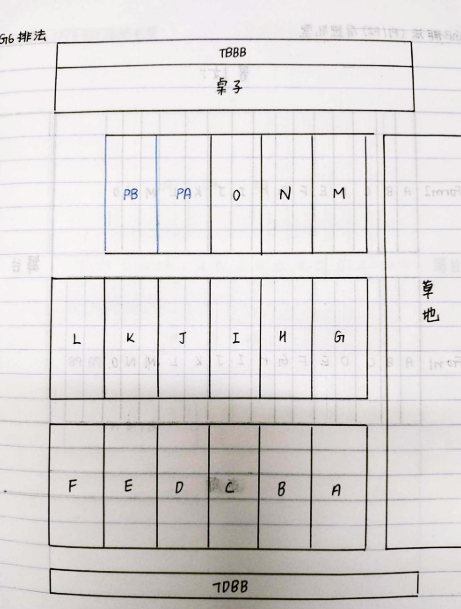 G6 排法
TBBB
桌子
PB PA O N M
草地
L K J I H G
F E D C B A
TDBB